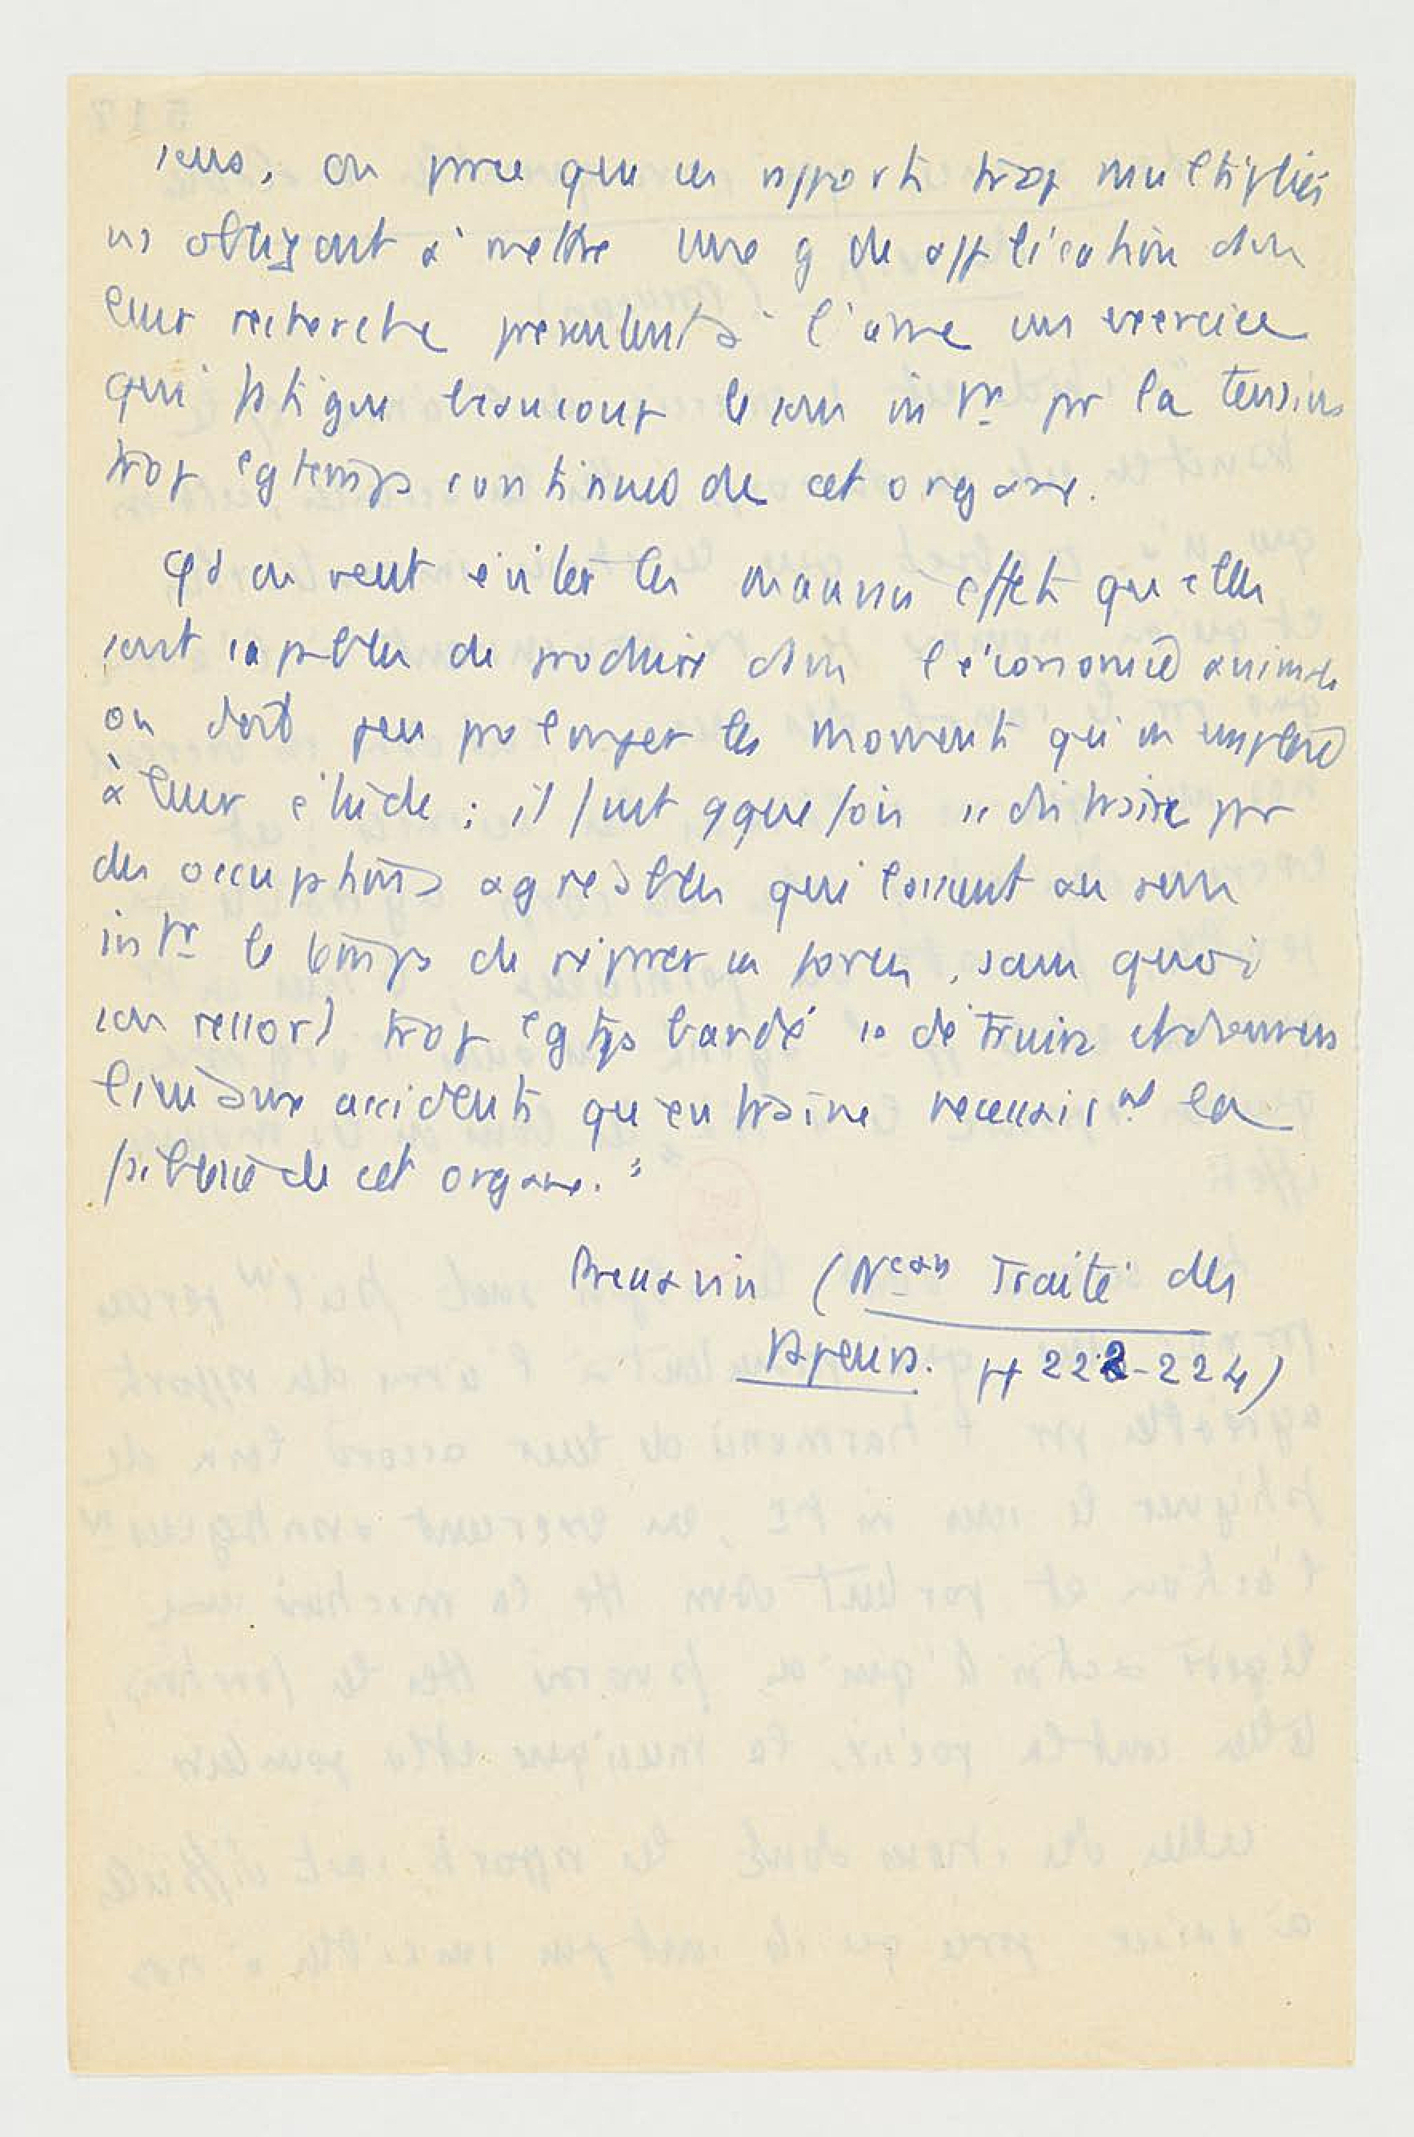 sens, ou parce que ces rapports trop multipliés
ns obligeant à mettre une gde application dans
leur recherche présentent à l'âme un exercice
qui fatigue beaucoup le sens intr par la tension
trop lgtemps continuée de cet organe.
Qd on veut éviter les mauvais effets qu'elles
sont capables de produire dans l'économie animale
on doit peu prolonger les moments qu'on emploie
à leur étude ; il faut qquefois se distraire par
des occupations agréables qui laissent au sens
intr le temps de réparer ses forces, sans quoi
son ressort trop lgtps bandé se détruira et
accidents qu'entraîne nécessairemt la
faiblesse de cet organe."
Bressavin (Nveau Traité des
Vapeurs. pp 222-224)
517